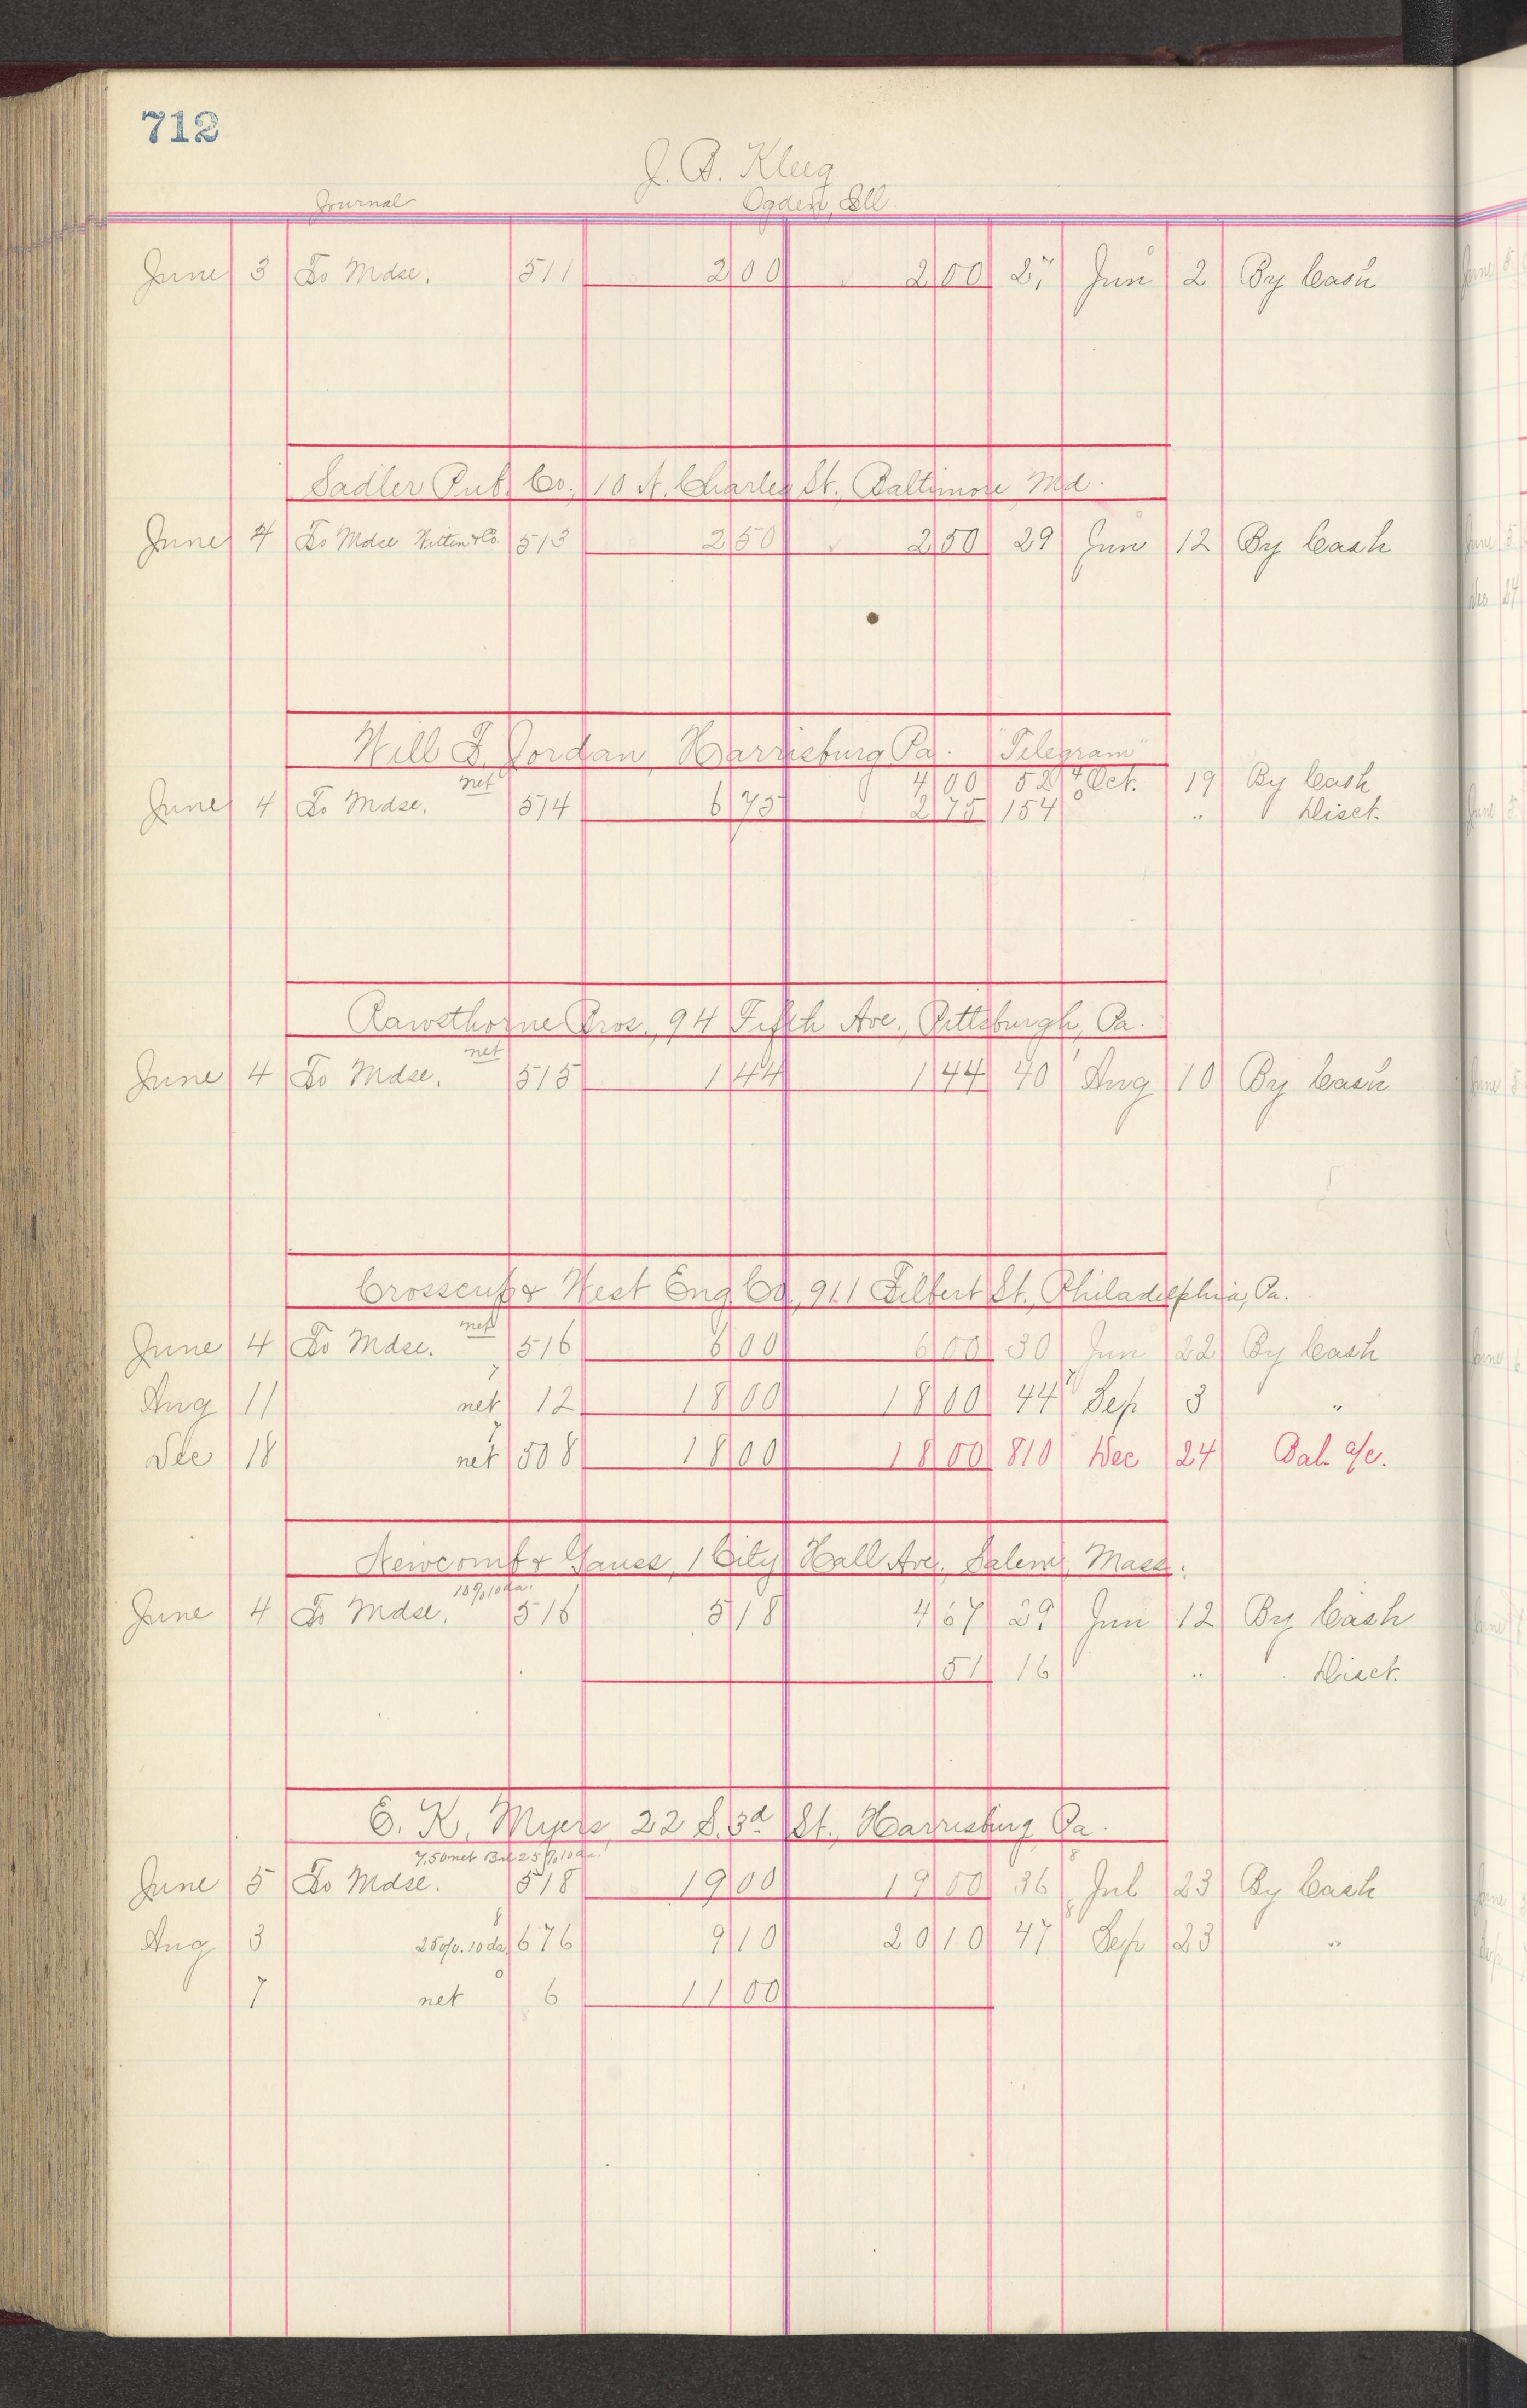 712
J. B. Klug
Journal Ogden, Ill.
June 3 To Mdse. 511 2 00 2 00 27 Jun 2 By Cash
Sadler Pub. Co., 10 N. Charles St., Baltimore Md.
June 4 To Mdse 513 2 50 2 50 29 Jun 12 By Cash
Will F. Jordan, Harrisburg Pa. "Telegram"
net 4 00 52 Oct. 19 By Cash
June 4 To Mdse. 514 6 75 2 75 154 " Disct.
Rawsthorne Bros., 94 Fifth Ave., Pittsburgh, Pa.
net
June 4 To Mdse. 515 1 44 1 44 40 Aug 10 By Cash
Crosscup & West Eng. Co., 911 Filbert St., Philadelphia, Pa.
net
June 4 To Mdse. 516 6 00 6 00 30 Jun 22 By Cash
Aug 11 net 12 18 00 18 00 44 Sep 3 "
Dec 18 net 508 18 00 18 00 810 Dec 24 Bal. a/c.
Newcomb & Gauss, 1 City Hall Ave., Salem, Mass.
10% 10 da.
June 4 To Mdse. 516 5 18 4 67 29 Jun 12 By Cash
51 16 " Disct.
E. K. Myers, 22 S. 3d St., Harrisburg Pa.
7.50 net Bal 25% 10 da.
June 5 To Mdse. 518 19 00 19 00 36 Jul 23 By Cash
Aug 3 25%. 10 da. 676 9 10 20 10 47 Sep 23 "
7 net 6 11 00